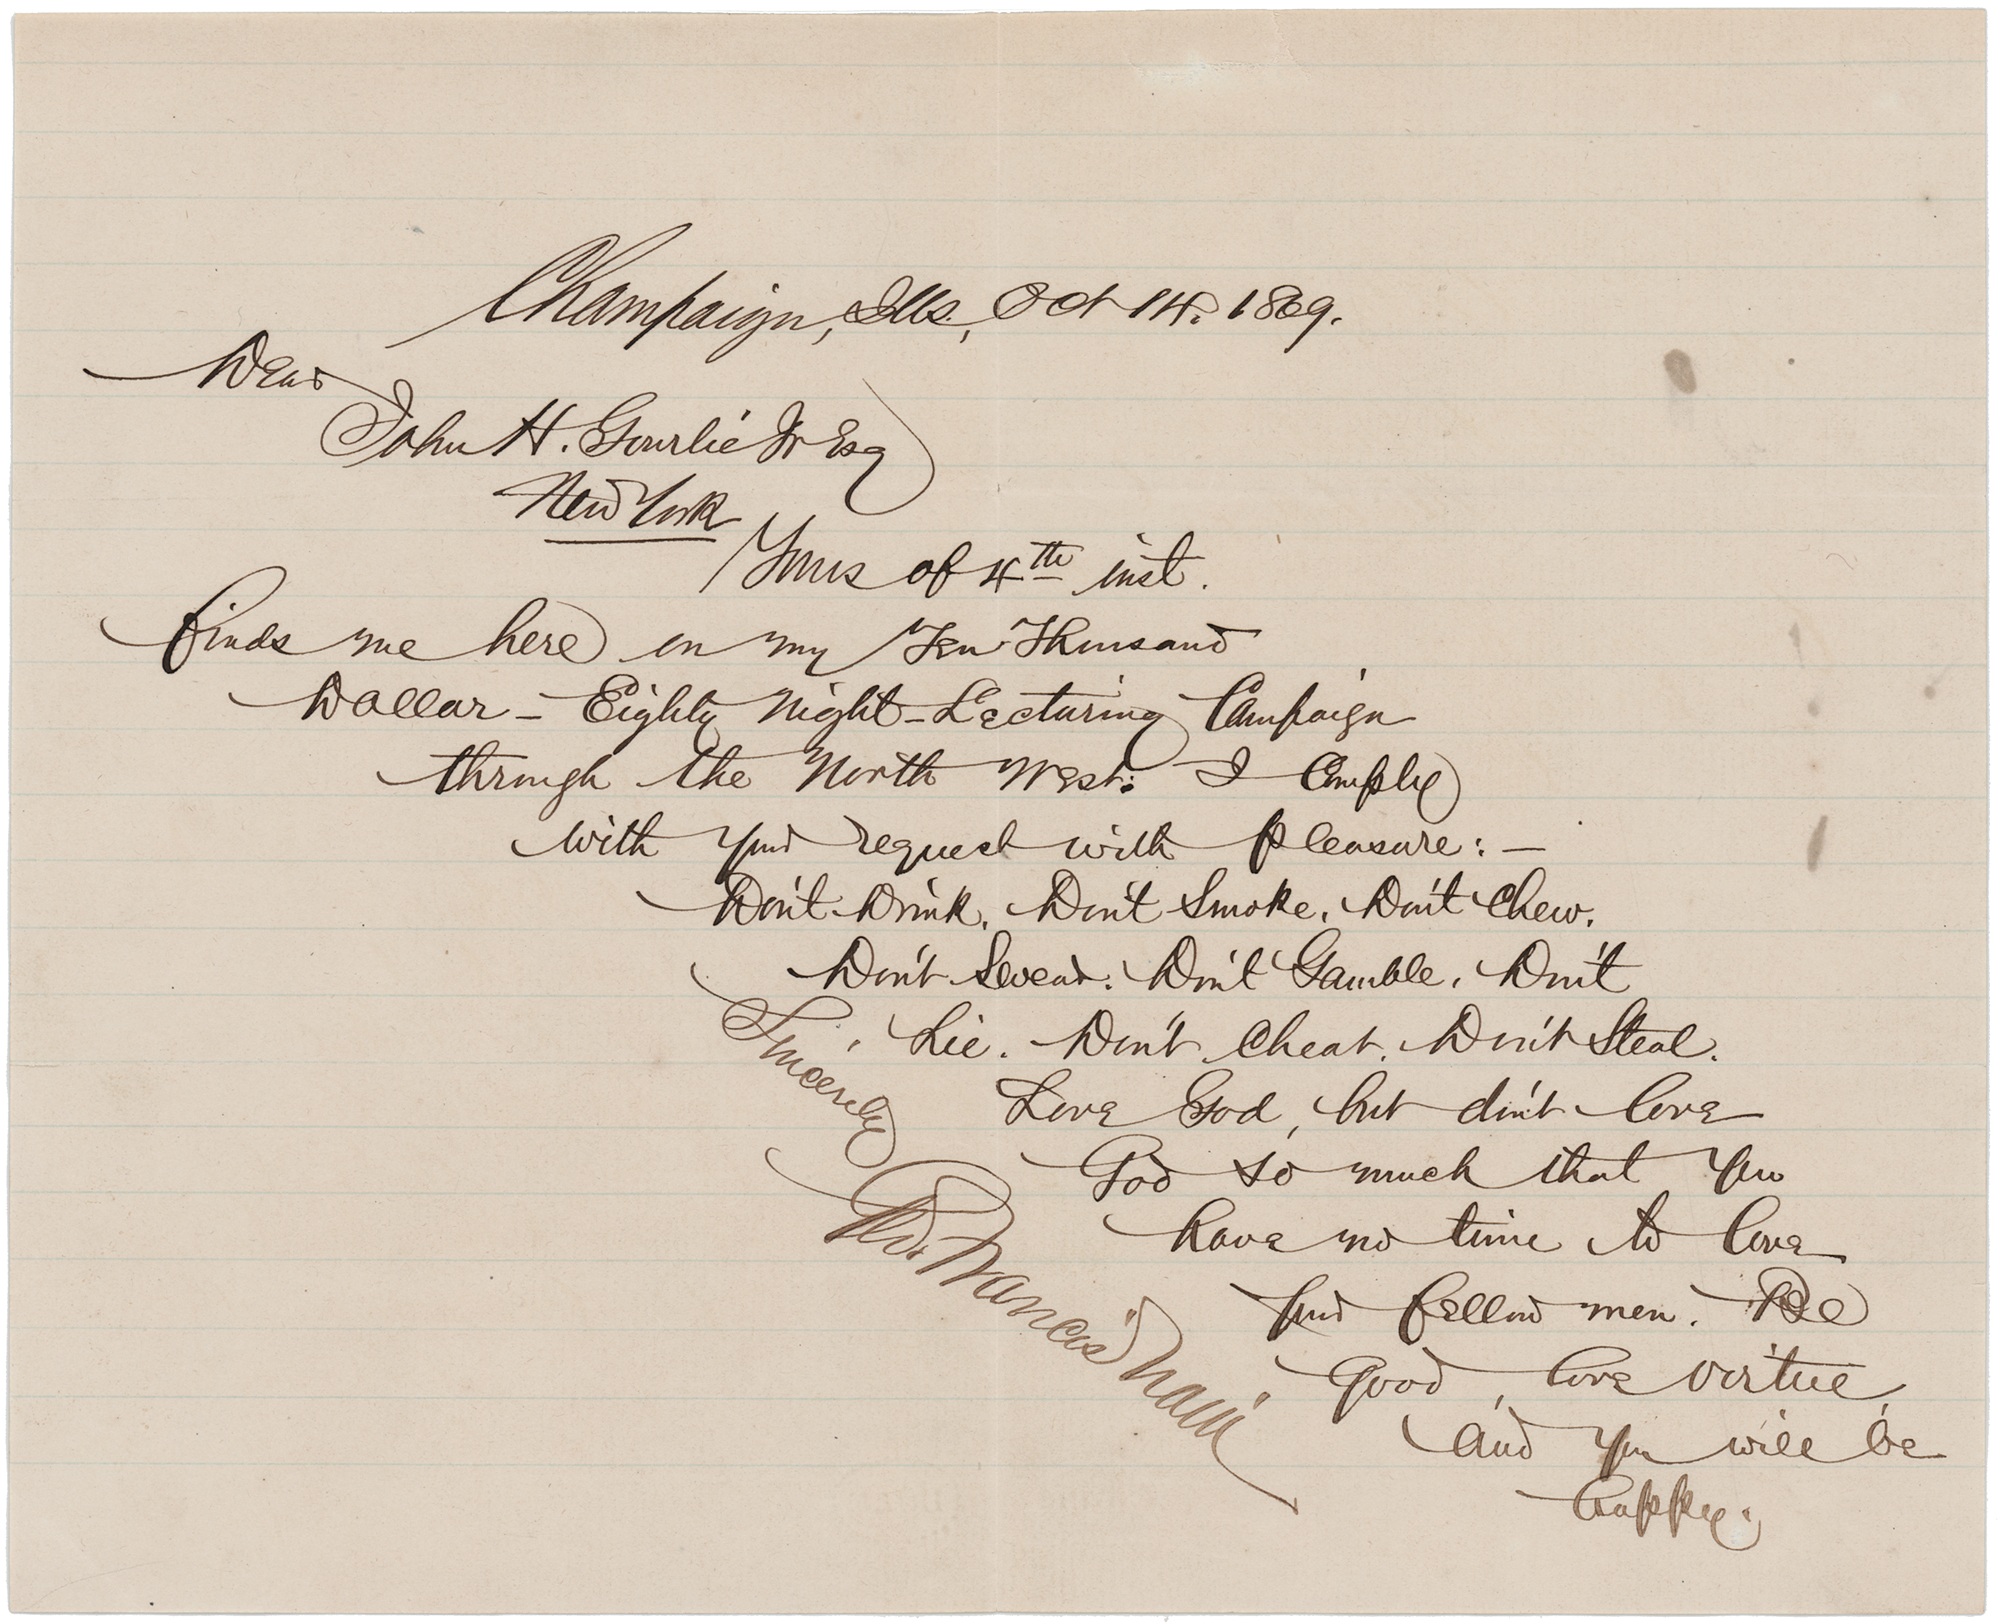 Champaign, Ills, Oct 14. 1869.
Dear
John H. Gourlie Jr Esq
New York
Yours of 4th inst.
finds me here on my Ten Thousand
Dollar - Eighty Night - Lecturing Campaign
through the North West: I Comply
with your request with pleasure: —
Don't Drink. Don't Smoke. Don't Chew.
Don't Swear. Don't Gamble. Don't
Lie. Don't Cheat. Don't Steal.
Love God, but don't love
God so much that you
have no time to love
your fellow men. Be
Good, love virtue,
and you will be
happy.
Sincerely
Geo Francis Train